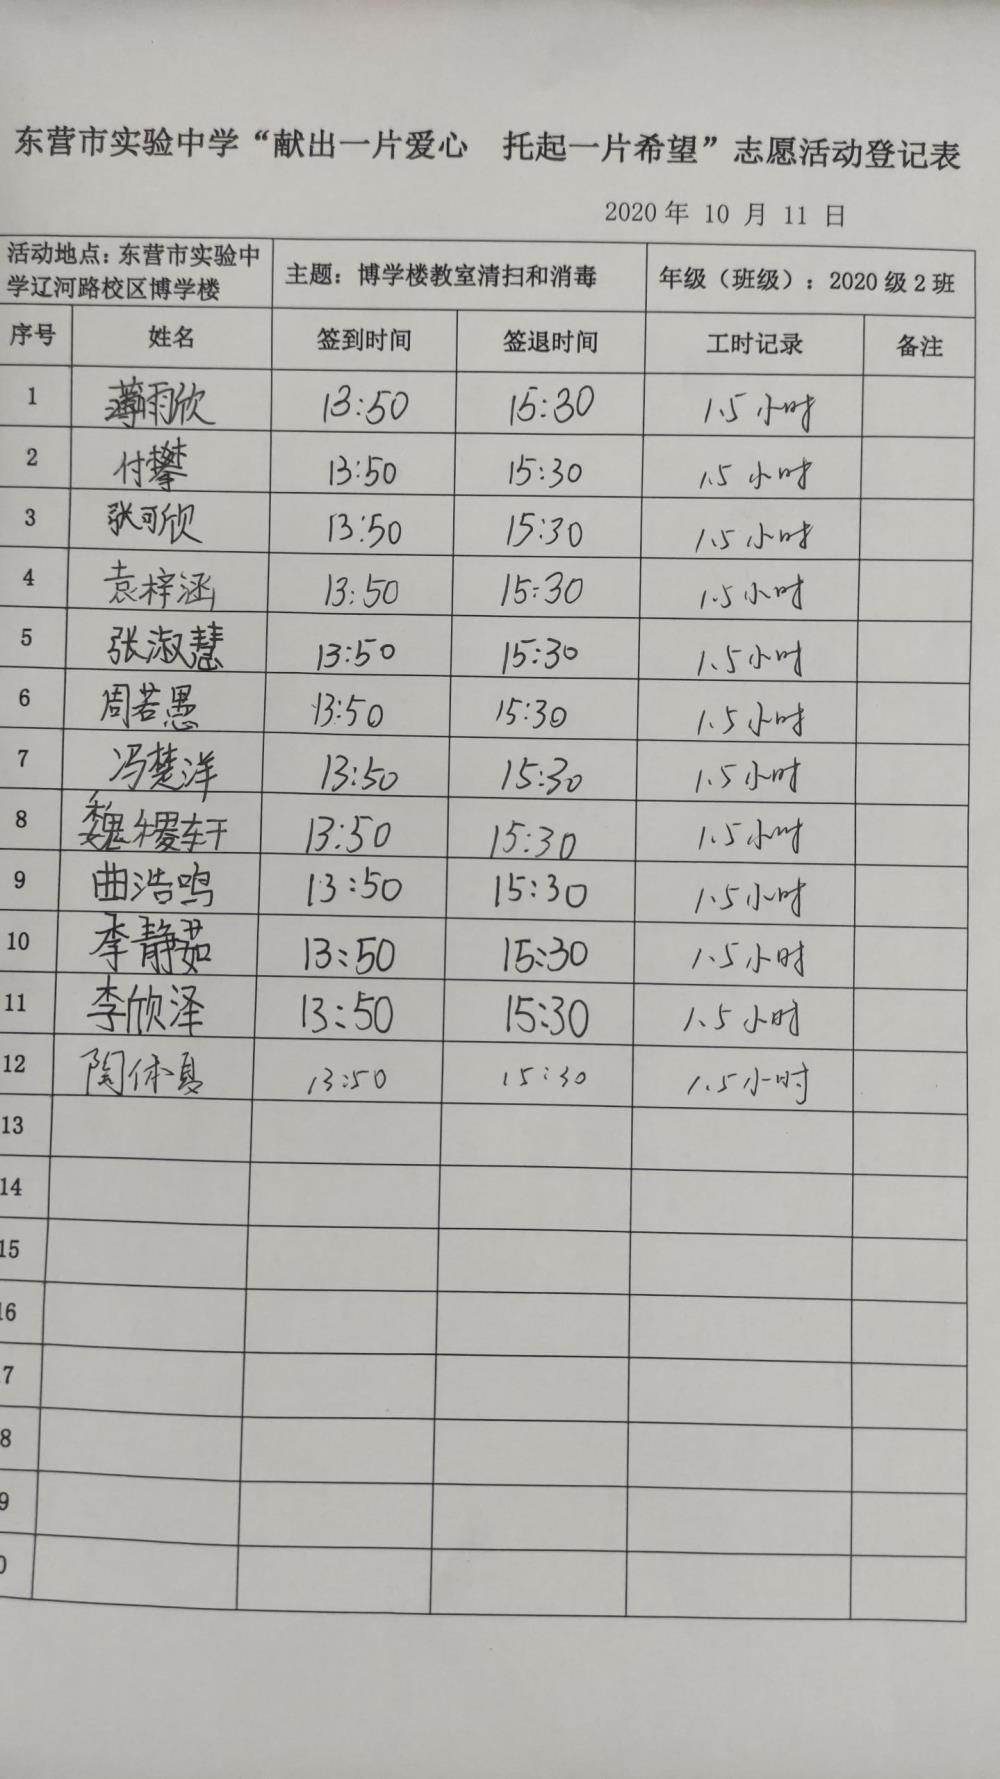 东营市实验中学“献出一片爱心 托起一片希望”志愿活动登记表
2020 年 10 月 11 日
活动地点：东营市实验中学辽河路校区博学楼 主题：博学楼教室清扫和消毒 年级（班级）：2020 级 2 班
序号 姓名 签到时间 签退时间 工时记录 备注
1 薄雨欣 13:50 15:30 1.5 小时
2 付攀 13:50 15:30 1.5 小时
3 张可欣 13:50 15:30 1.5 小时
4 袁梓涵 13:50 15:30 1.5 小时
5 张淑慧 13:50 15:30 1.5 小时
6 周若愚 13:50 15:30 1.5 小时
7 冯楚洋 13:50 15:30 1.5 小时
8 魏稷轩 13:50 15:30 1.5 小时
9 曲浩鸣 13:50 15:30 1.5 小时
10 李静茹 13:50 15:30 1.5 小时
11 李欣泽 13:50 15:30 1.5 小时
12 陶体夏 13:50 15:30 1.5 小时
13
14
15
16
7
8
9
0